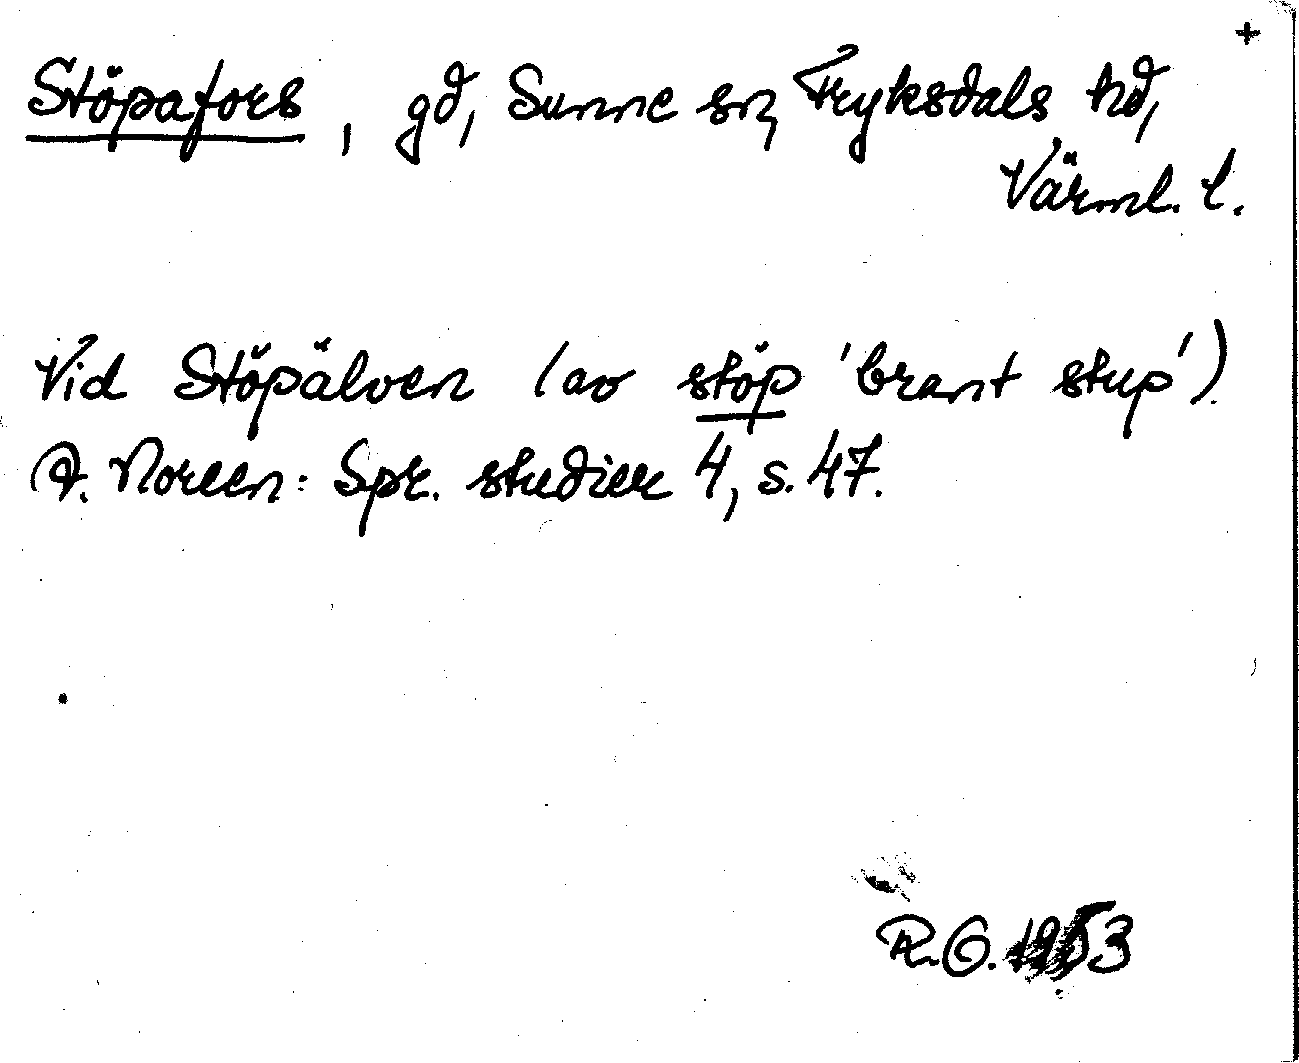 +
Stöpafors, gd, Sunne sn, Fryksdals hd,
Värml. l.
Vid Stöpälven (av stöp 'brant stup').
A. Noreen: Spr. studier 4, s. 47.
R.G. 1953